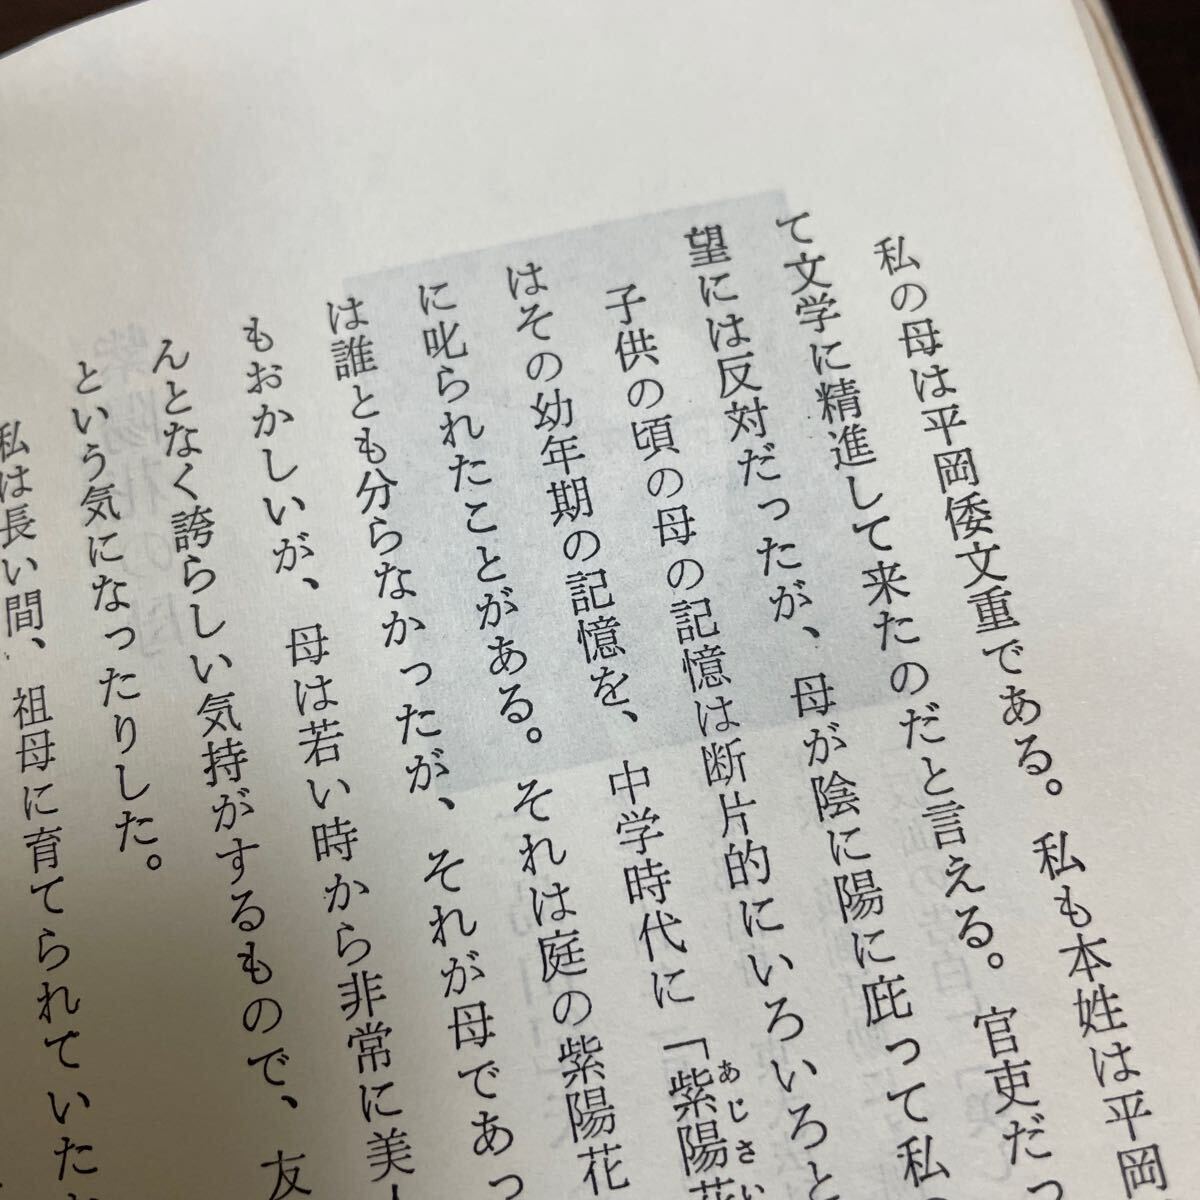 私の母は平岡倭文重である。私も本姓は平岡
て文学に精進して来たのだと言える。官吏だっ
望には反対だったが、母が陰に陽に庇って私
子供の頃の母の記憶は断片的にいろいろと
はその幼年期の記憶を、中学時代に「紫陽花
あじさい
に叱られたことがある。それは庭の紫陽花
は誰とも分らなかったが、それが母であっ
もおかしいが、母は若い時から非常に美
んとなく誇らしい気持がするもので、友
という気になったりした。
私は長い間、祖母に育てられていた